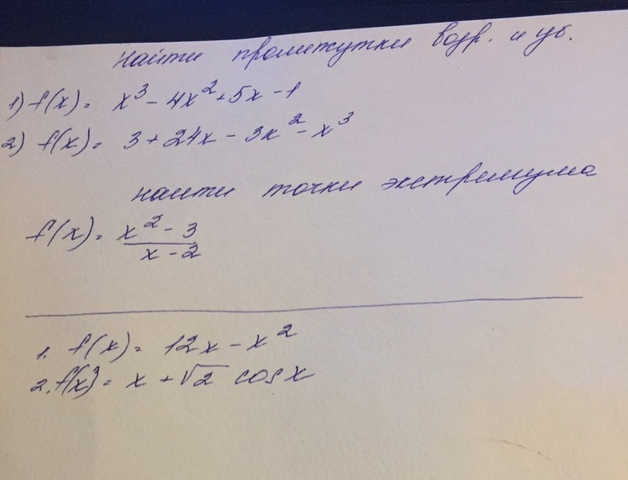 найти промежутки возр. и уб.
1) f(x) = x³ - 4x² + 5x - 1
2) f(x) = 3 + 24x - 3x² - x³
найти точки экстремума
f(x) = x² - 3 / x - 2
1. f(x) = 12x - x²
2. f(x) = x + √2 cos x